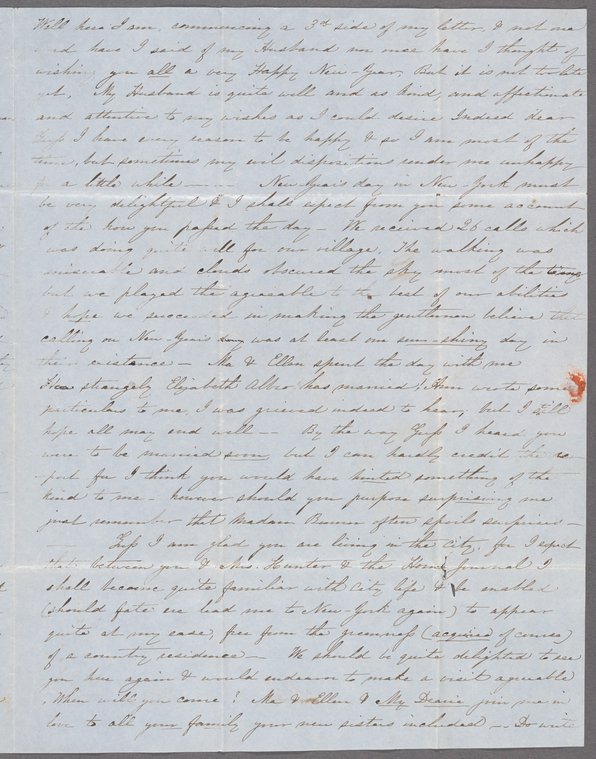 Well here I am, commencing a 3rd side of my letter, & not one
word have I said of my Husband nor once have I thought of
wishing you all a very Happy New-Year, But it is not too late
yet. My Husband is quite well and as kind, and affectionate
and attentive to my wishes as I could desire Indeed dear
I have every reason to be happy & so I am most of the
time, but sometimes my evil disposition render me unhappy
for a little while — — — New Year's day in New York must
be very delightful & I shall expect from you some account
of the how you passed the day — We received 26 calls which
was doing quite well for our village. The walking was
miserable and clouds obscured the sky most of the time
but we played the agreeable to the best of our abilities
& hope we succeeded in making the gentlemen believe that
calling on New-Year's day was at least one sun-shiny day in
their existance — Ma & Ellen spent the day with me
How strangely Elizabeth has married! wrote some
particulars to me, I was grieved indeed to hear, but I still
hope all may end well — By the way I heard you
were to be married soon, but I can hardly credit the re
-port for I think you would have hinted something of the
kind to me — however should you purpose surprising me
just remember that Madam often spoils surprises —
— I am glad you are living in the city, for I expect
that between you & Mrs. Hunter & the Home Journal I
shall become quite familiar with City life & be enabled
(should fate ere lead me to New-York again) to appear
quite at my ease, free from the greenness (acquired of course)
of a country residence — We should be quite delighted to see
you here again & would endeavor to make a visit agreeable
. When will you come? Ma & Ellen & My Dearie join me in
love to all your family your new sisters included — Do write